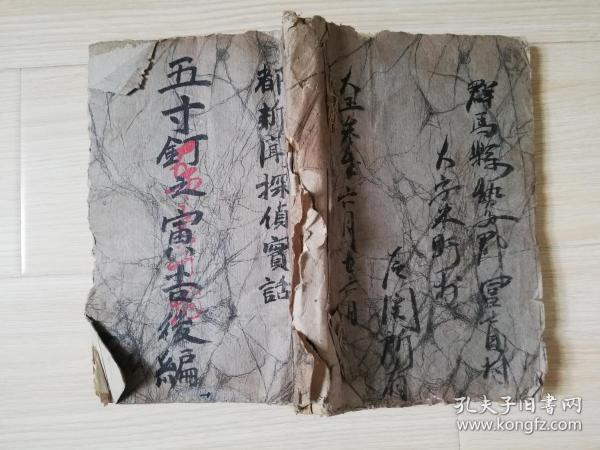 群馬縣勢多郡宮城村
大字
六月廿六日
所有
都新聞探偵實話
五寸釘之寅吉後編
孔夫子旧书网
www.kongfz.com